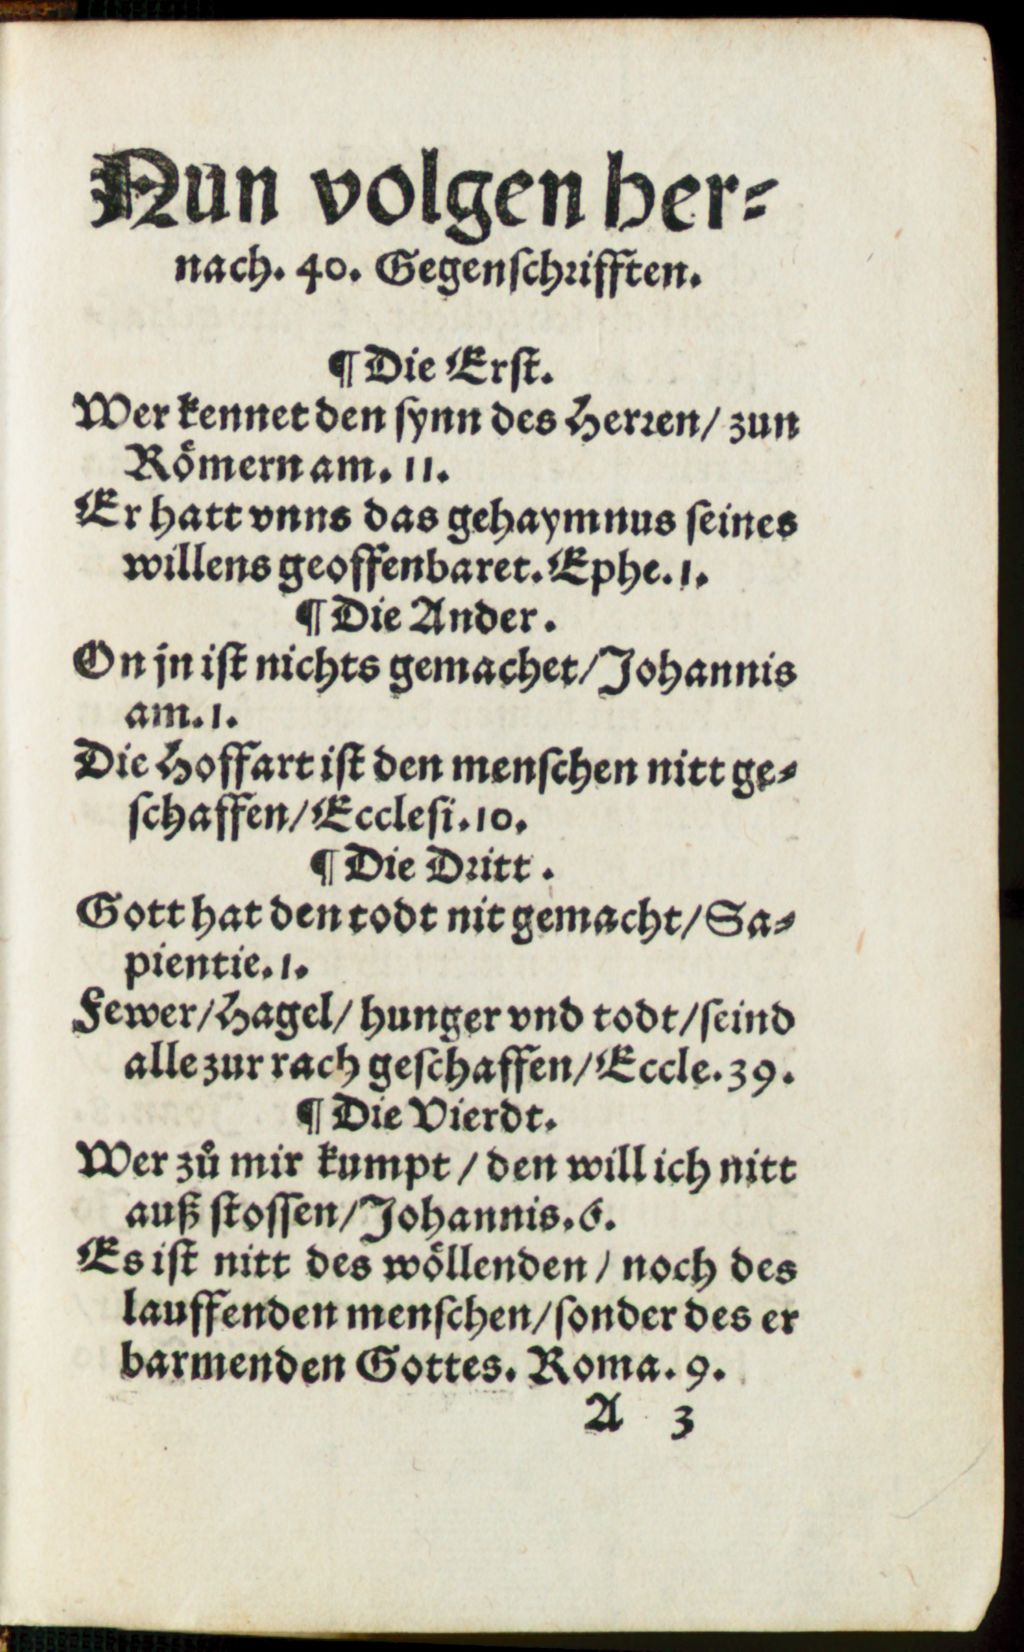 Nun volgen her⸗
nach. 40. Gegenschrifften.
¶ Die Erst.
Wer kennet den synn des Herren/ zun
Römern am. 11.
Er hatt vnns das gehaymnus seines
willens geoffenbaret. Ephe. 1.
¶ Die Ander.
On jn ist nichts gemachet/ Johannis
am. 1.
Die Hoffart ist den menschen nitt ge⸗
schaffen/ Ecclesi. 10.
¶ Die Dritt.
Gott hat den todt nit gemacht/ Sa⸗
pientie. 1.
Fewer/ Hagel/ hunger vnd todt/ seind
alle zur rach geschaffen/ Eccle. 39.
¶ Die Vierdt.
Wer zuͦ mir kumpt / den will ich nitt
auß stossen/ Johannis. 6.
Es ist nitt des wöllenden / noch des
lauffenden menschen/ sonder des er
barmenden Gottes. Roma. 9.
A 3